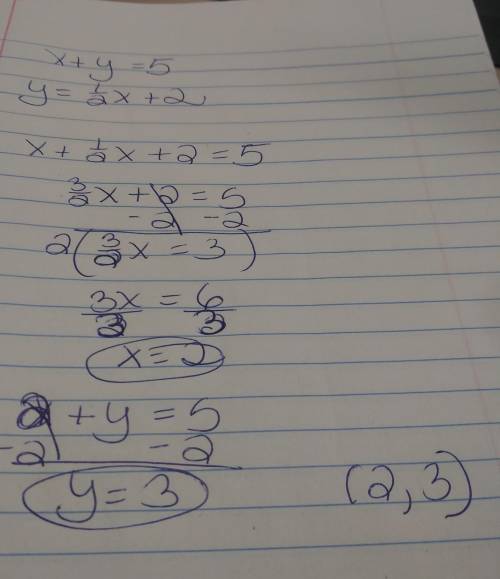 x + y = 5
y = 1/2 x + 2
x + 1/2 x + 2 = 5
3/2 x + 2 = 5
- 2 - 2
2 ( 3/2 x = 3 )
3x/3 = 6/3
x = 2
2 + y = 5
- 2 - 2
y = 3
(2, 3)